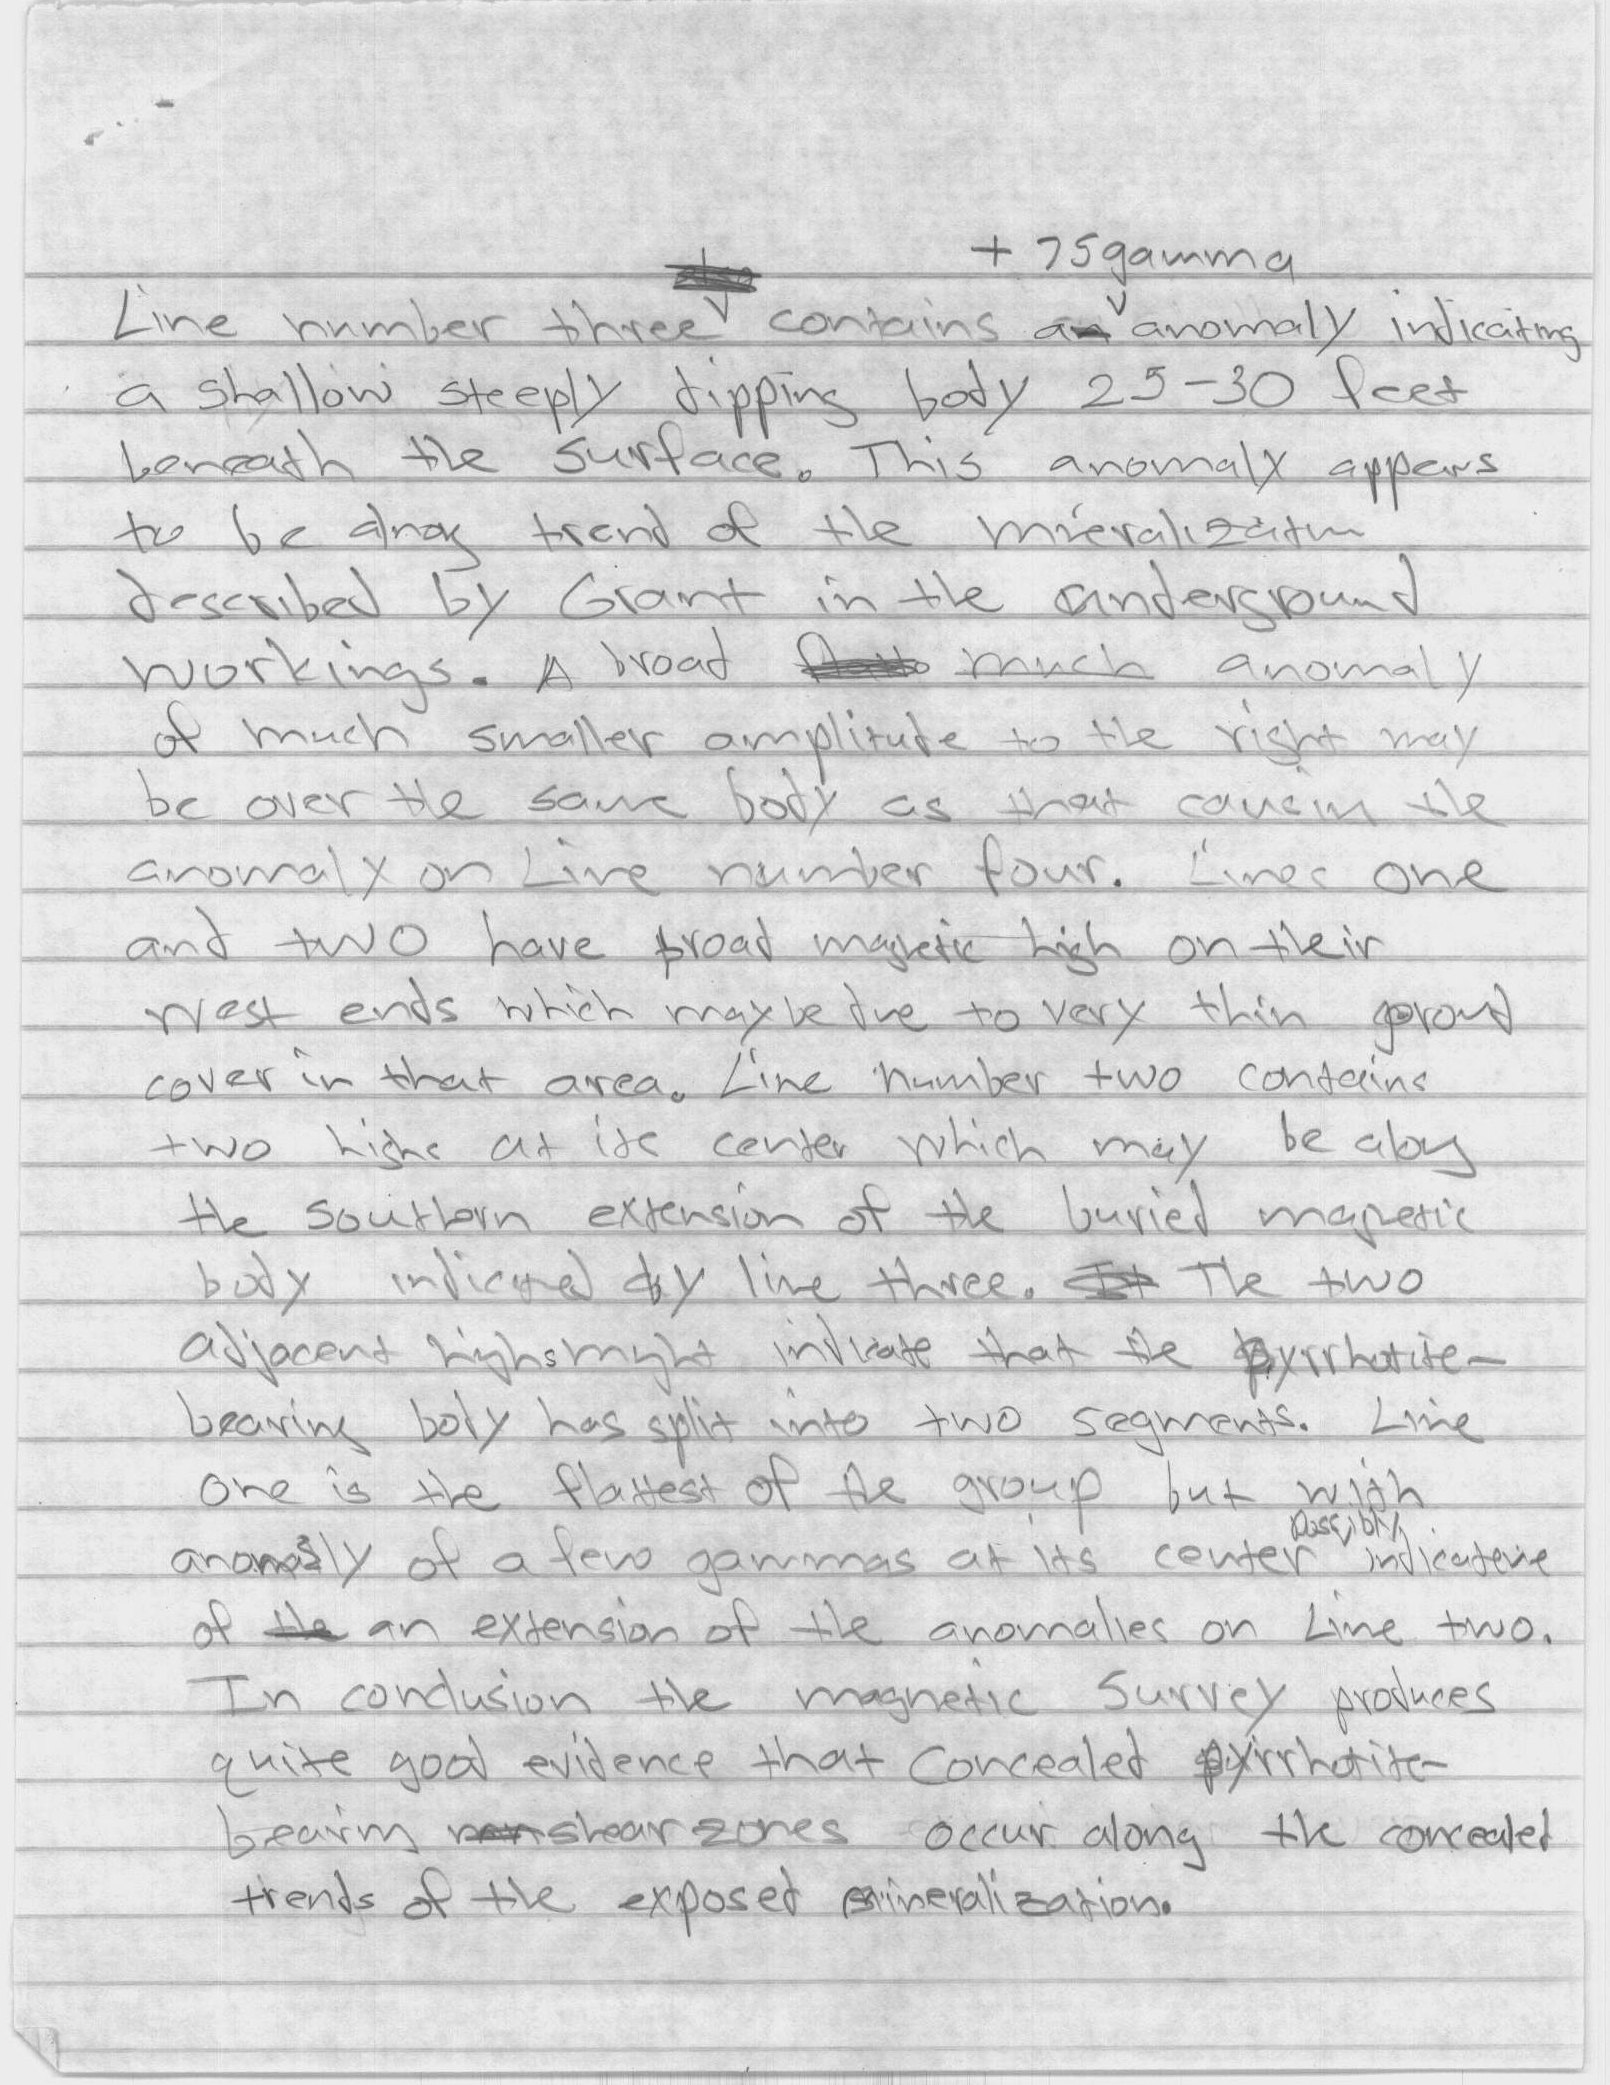 + 75 gamma
Line number three contains a anomaly indicating
a shallow steeply dipping body 25-30 feet
beneath the surface. This anomaly appears
to be along trend of the mineralization
described by Grant in the underground
workings. A broad much anomaly
of much smaller amplitude to the right may
be over the same body as that causin the
anomaly on Line number four. Lines one
and two have broad magnetic high on their
west ends which may be due to very thin ground
cover in that area. Line number two contains
two highs at its center which may be along
the southern extension of the buried magnetic
body indicated by line three. It The two
adjacent highs might indicate that the pyrrhotite-
bearing body has split into two segments. Line
one is the flattest of the group but with
possibly
anomaly of a few gammas at its center indicative
of the an extension of the anomalies on Line two.
In conclusion the magnetic survey produces
quite good evidence that concealed pyrrhotite-
bearing shear zones occur along the concealed
trends of the exposed mineralization.